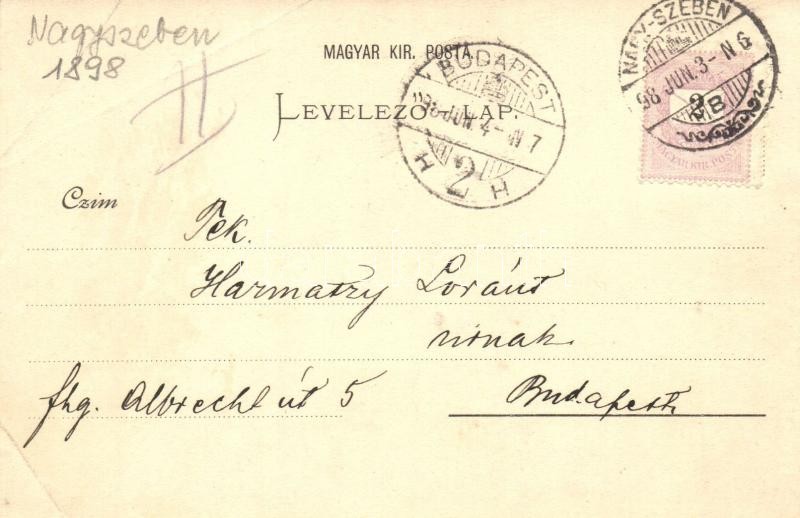 Nagyszeben
1898
II
MAGYAR KIR. POSTA.
LEVELEZŐ-LAP.
BUDAPEST
98 JUN 4 - N 7
H 2 H
NAGY-SZEBEN
98 JUN. 3 - N 6
B
2
MAGYAR KIR. POSTA
Czim
Tek.
Harmatzy Loránt
úrnak
fhg. Albrecht út 5
Budapest